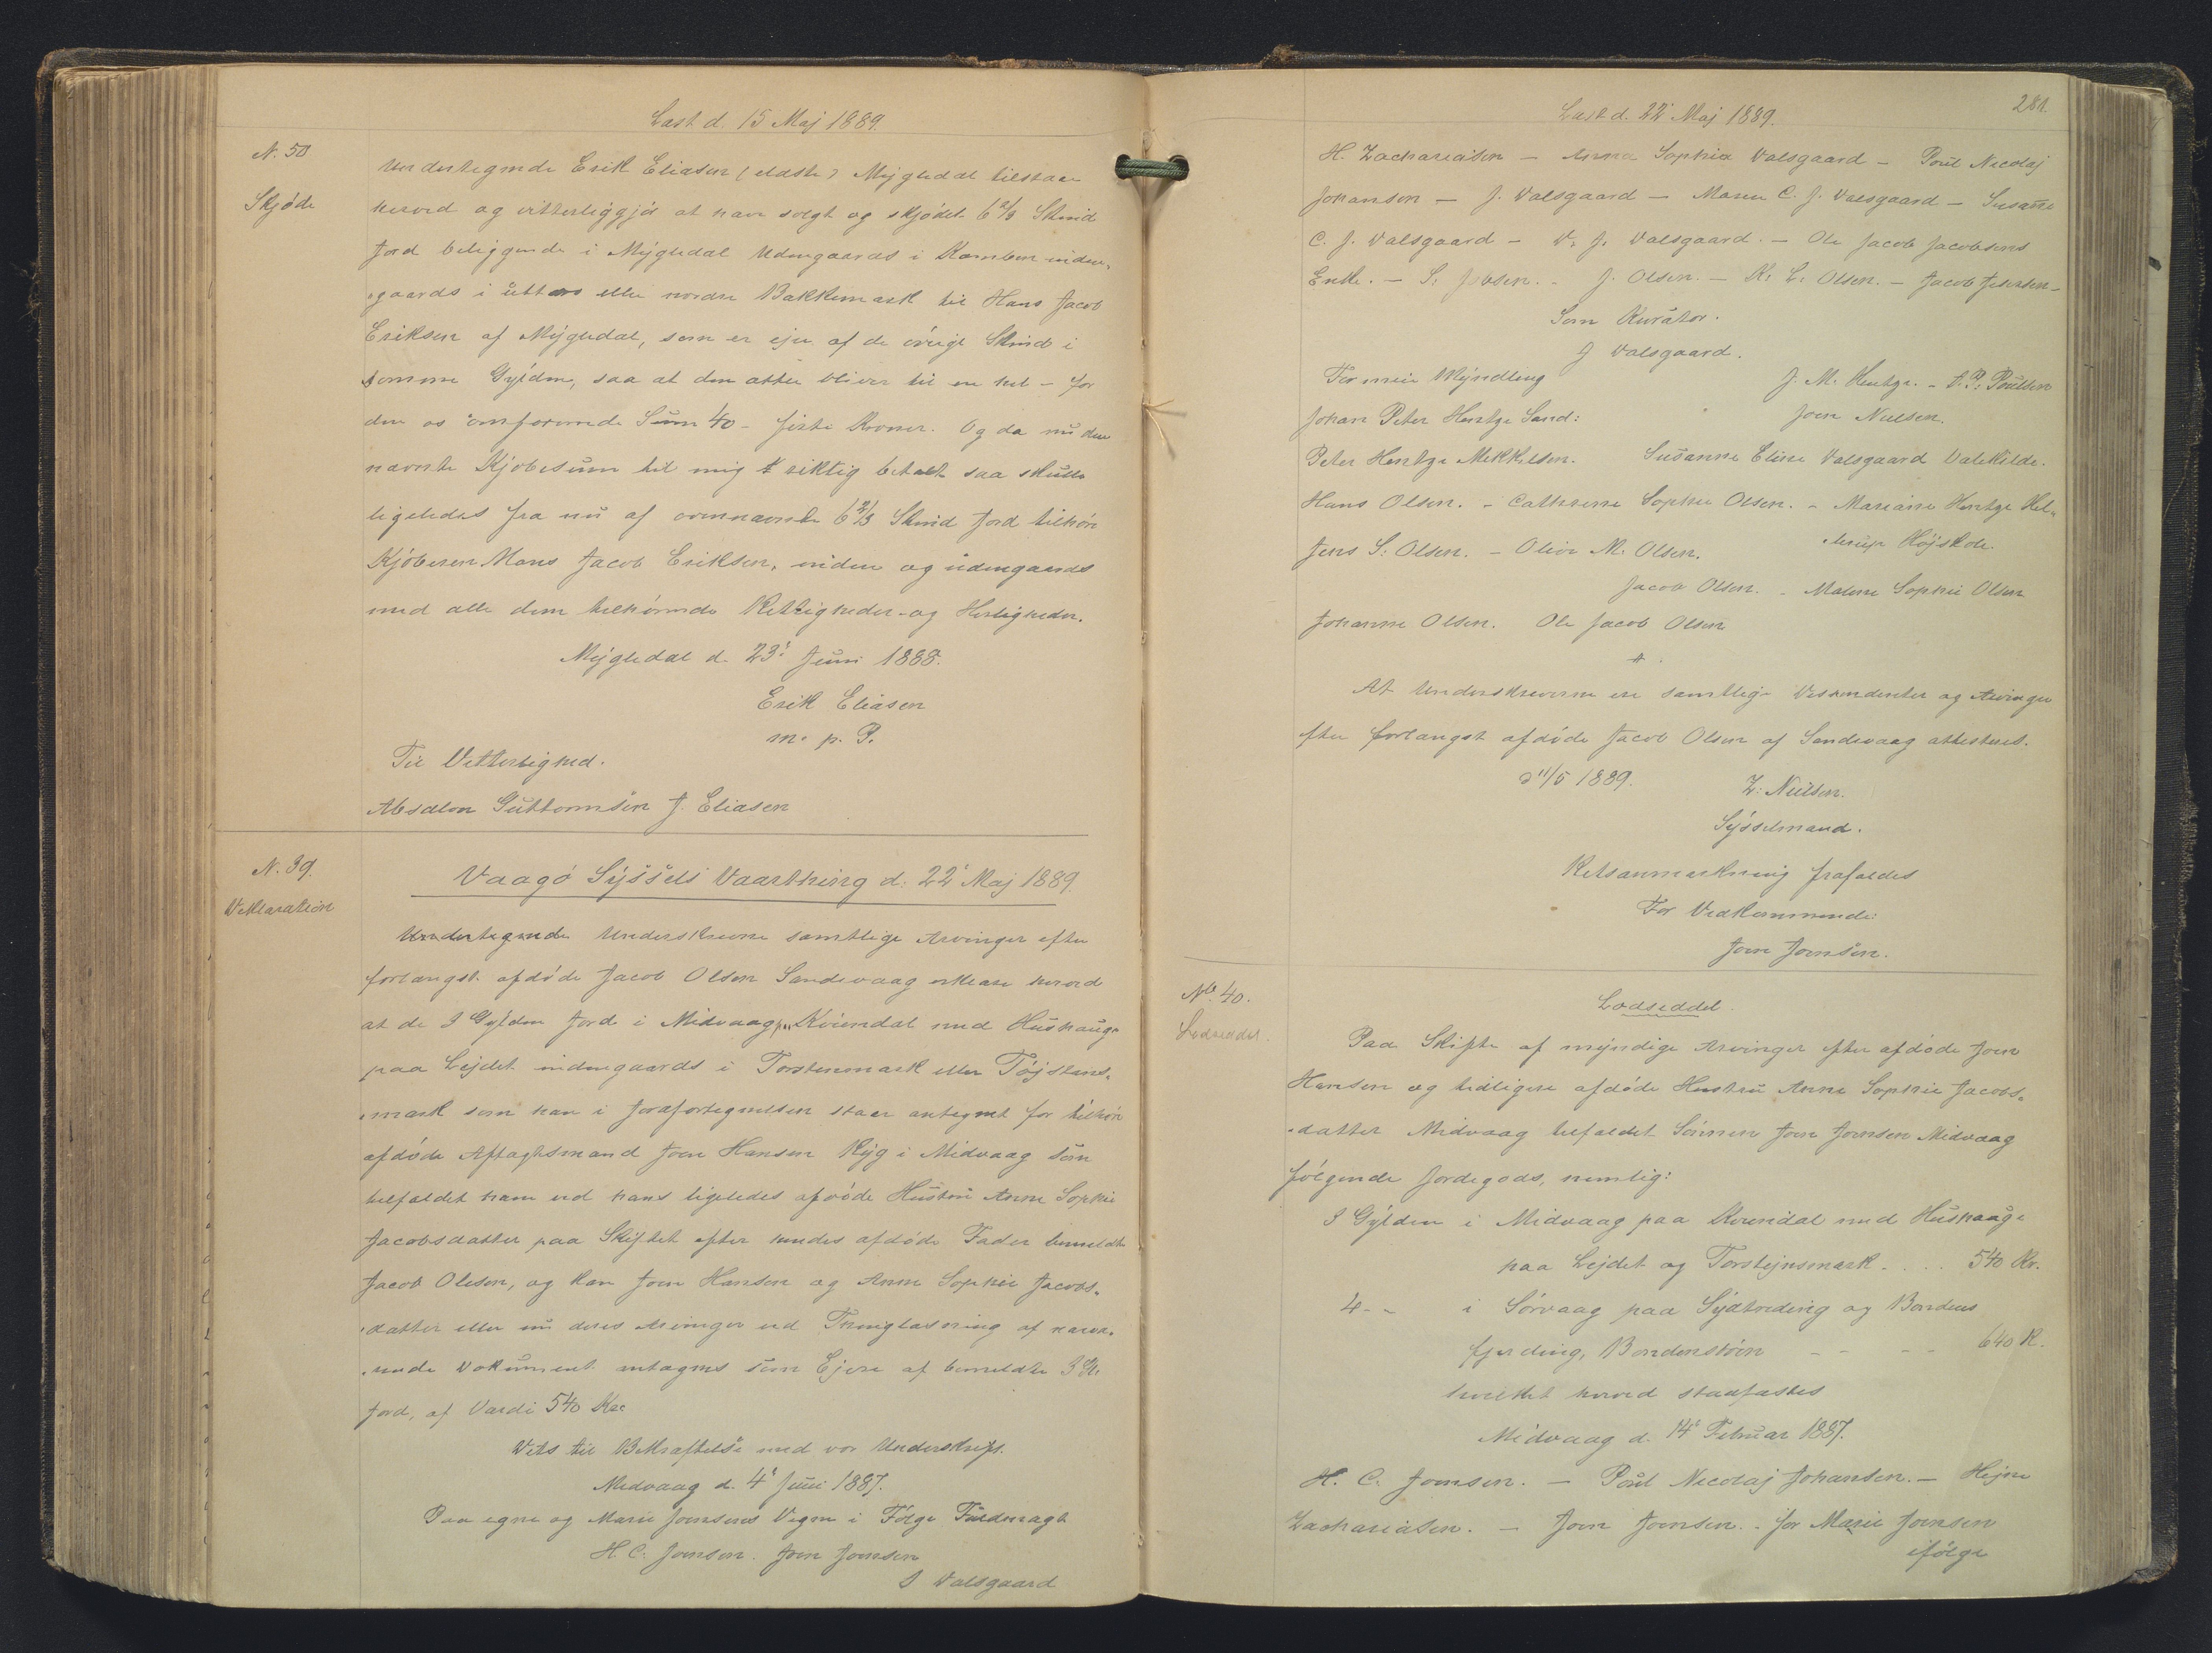 Læst d. 15 Maj 1889.
N. 50
Skjøde
Undertegnede Erik Eliasen (eldste) Mygledal tilstaar
herved og vitterliggjør at have solgt og skjødet 6 2/3 Skind
Jord beliggende i Mygledal Udengaards i Kamben inden-
gaards i uttara eller nordre Bakkemark til Hans Jacob
Eriksen af Mygledal, som er ejer af de øvrige Skind i
somme Gylden, saa at den atter bliver til en hel - for
den os omforenede Sum 40 - firti Kroner. Og da nu den
nævnte Kjøbesum til mig er riktig betalt saa skulle
ligeledes fra nu af ovennævnte 6 2/3 Skind Jord tilhøre
Kjøberen Hans Jacob Eriksen, inden og udengaards
med alle dem tilhørende Rettigheder og Herligheder.
Mygledal d. 23' Juni 1888.
Erik Eliasen
m. p. P.
Til Vitterlighed.
Absalon Guttormsen J. Eliasen
N. 39.
Deklaration
Vaagø Syssels Vaarthing d: 22' Maj 1889.
Undertegnede Underskrevne samtlige Arvinger efter
forlængst afdøde Jacob Olsen Sandevaag erklære herved
at de 3 Gylden Jord i Midvaag paa Kvindal med Hushauge
paa Lejdet indengaards i Torstensmark eller Tøjstens-
mark som han i Jordfortegnelsen staar antegnet for tilhøre
afdøde Aftægtsmand Joen Hansen Ryg i Midvaag som
tilfaldet ham ved hans ligeledes afdøde Hustru Anne Sophie
Jacobsdatter paa Skiftet efter hendes afdøde Fader bemeldte
Jacob Olesen, og kan Joen Hansen og Anne Sophie Jacobs-
datter eller nu deres Arvinger ved Thinglæsning af nærvæ-
rende Dokument antegnes som Ejere af bemeldte 3 Gl.
Jord, af Værdi 540 Kr.
Dets til Bekræftelse med vor Underskrift.
Midvaag d. 4' Juni 1887.
Paa egne og Marie Joensens Vegne i Følge Fuldmagt
H. C. Joensen. Joen Joensen
J Dalsgaard
Læst d. 22' Maj 1889.
281.
H. Zachariasen - Anna Sophia Dalsgaard - Poul Nicolaj
Johansen - J. Dalsgaard - Maren C. J. Dalsgaard - Susanne
C. J. Dalsgaard - D. J. Dalsgaard. - Ole Jacob Jacobsens
Enke. - S. Joesen. - J. Olsen. - K. E. Olsen. - Jacob Jesersen -
Som Kurator.
J Dalsgaard.
For min Myndling
J. M. Hentze. - D. P. Poulsen
Johan Peter Hentze Sand:
Joen Nielsen.
Peter Hentze Mekkelsen. Susanne Elise Dalsgaard Valekilde.
Hans Olsen. - Cathrine Sophie Olsen. - Mariane Hentze Hel-
Jens S. Olsen. - Olive M. Olsen.
lerup Højskole.
Jacob Olsen. - Malene Sophie Olsen
Johanne Olsen. Ole Jacob Olsen
At Underskriverne ere samtlige Descendenter og Arvinger
efter forlængst afdøde Jacob Olsen af Sandevaag attesteres.
d 11/5 1889.
Z. Nielsen.
Sysselmand.
Retsanmærkning frafaldes
For Vedkommende:
Joen Joensen.
No 40.
Lodseddel.
Lodseddel
Paa Skifte af myndige Arvinger efter afdøde Joen
Hansen og tidligere afdøde Hustru Anne Sophie Jacobs-
datter Midvaag tilfaldet Sønnen Joen Joensen Midvaag
følgende Jordegods, nemlig:
3 Gylden i Midvaag paa Kvindal med Hushauge
paa Lejdet og Torstejnsmark. . . . 540 Kr.
4 - - i Sørvaag paa Sydtreding og Bondens
fjerding, Bondenstøvn - - - - 640 K.
hvilket herved stadfæstes
Midvaag d. 14' Februar 1887.
H. C. Joensen. - Poul Nicolaj Johansen. - Hejne
Zachariasen. - Joen Joensen. - for Marie Joensen
ifølge